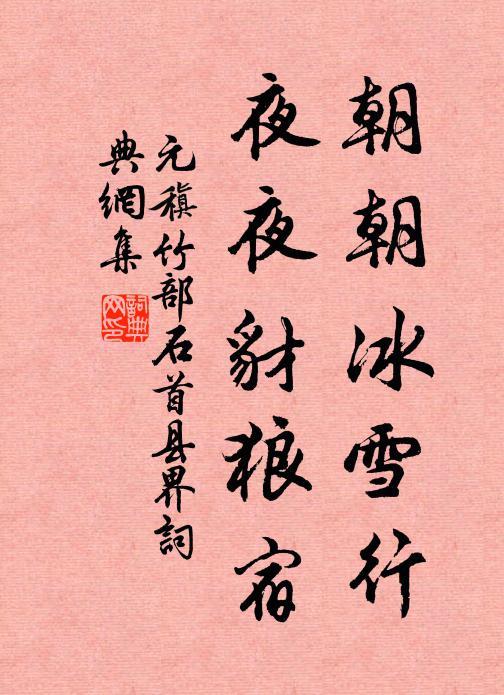 朝朝冰雪行
夜夜豺狼宿
元稹竹部石首县界詞
典網集
詞典网印